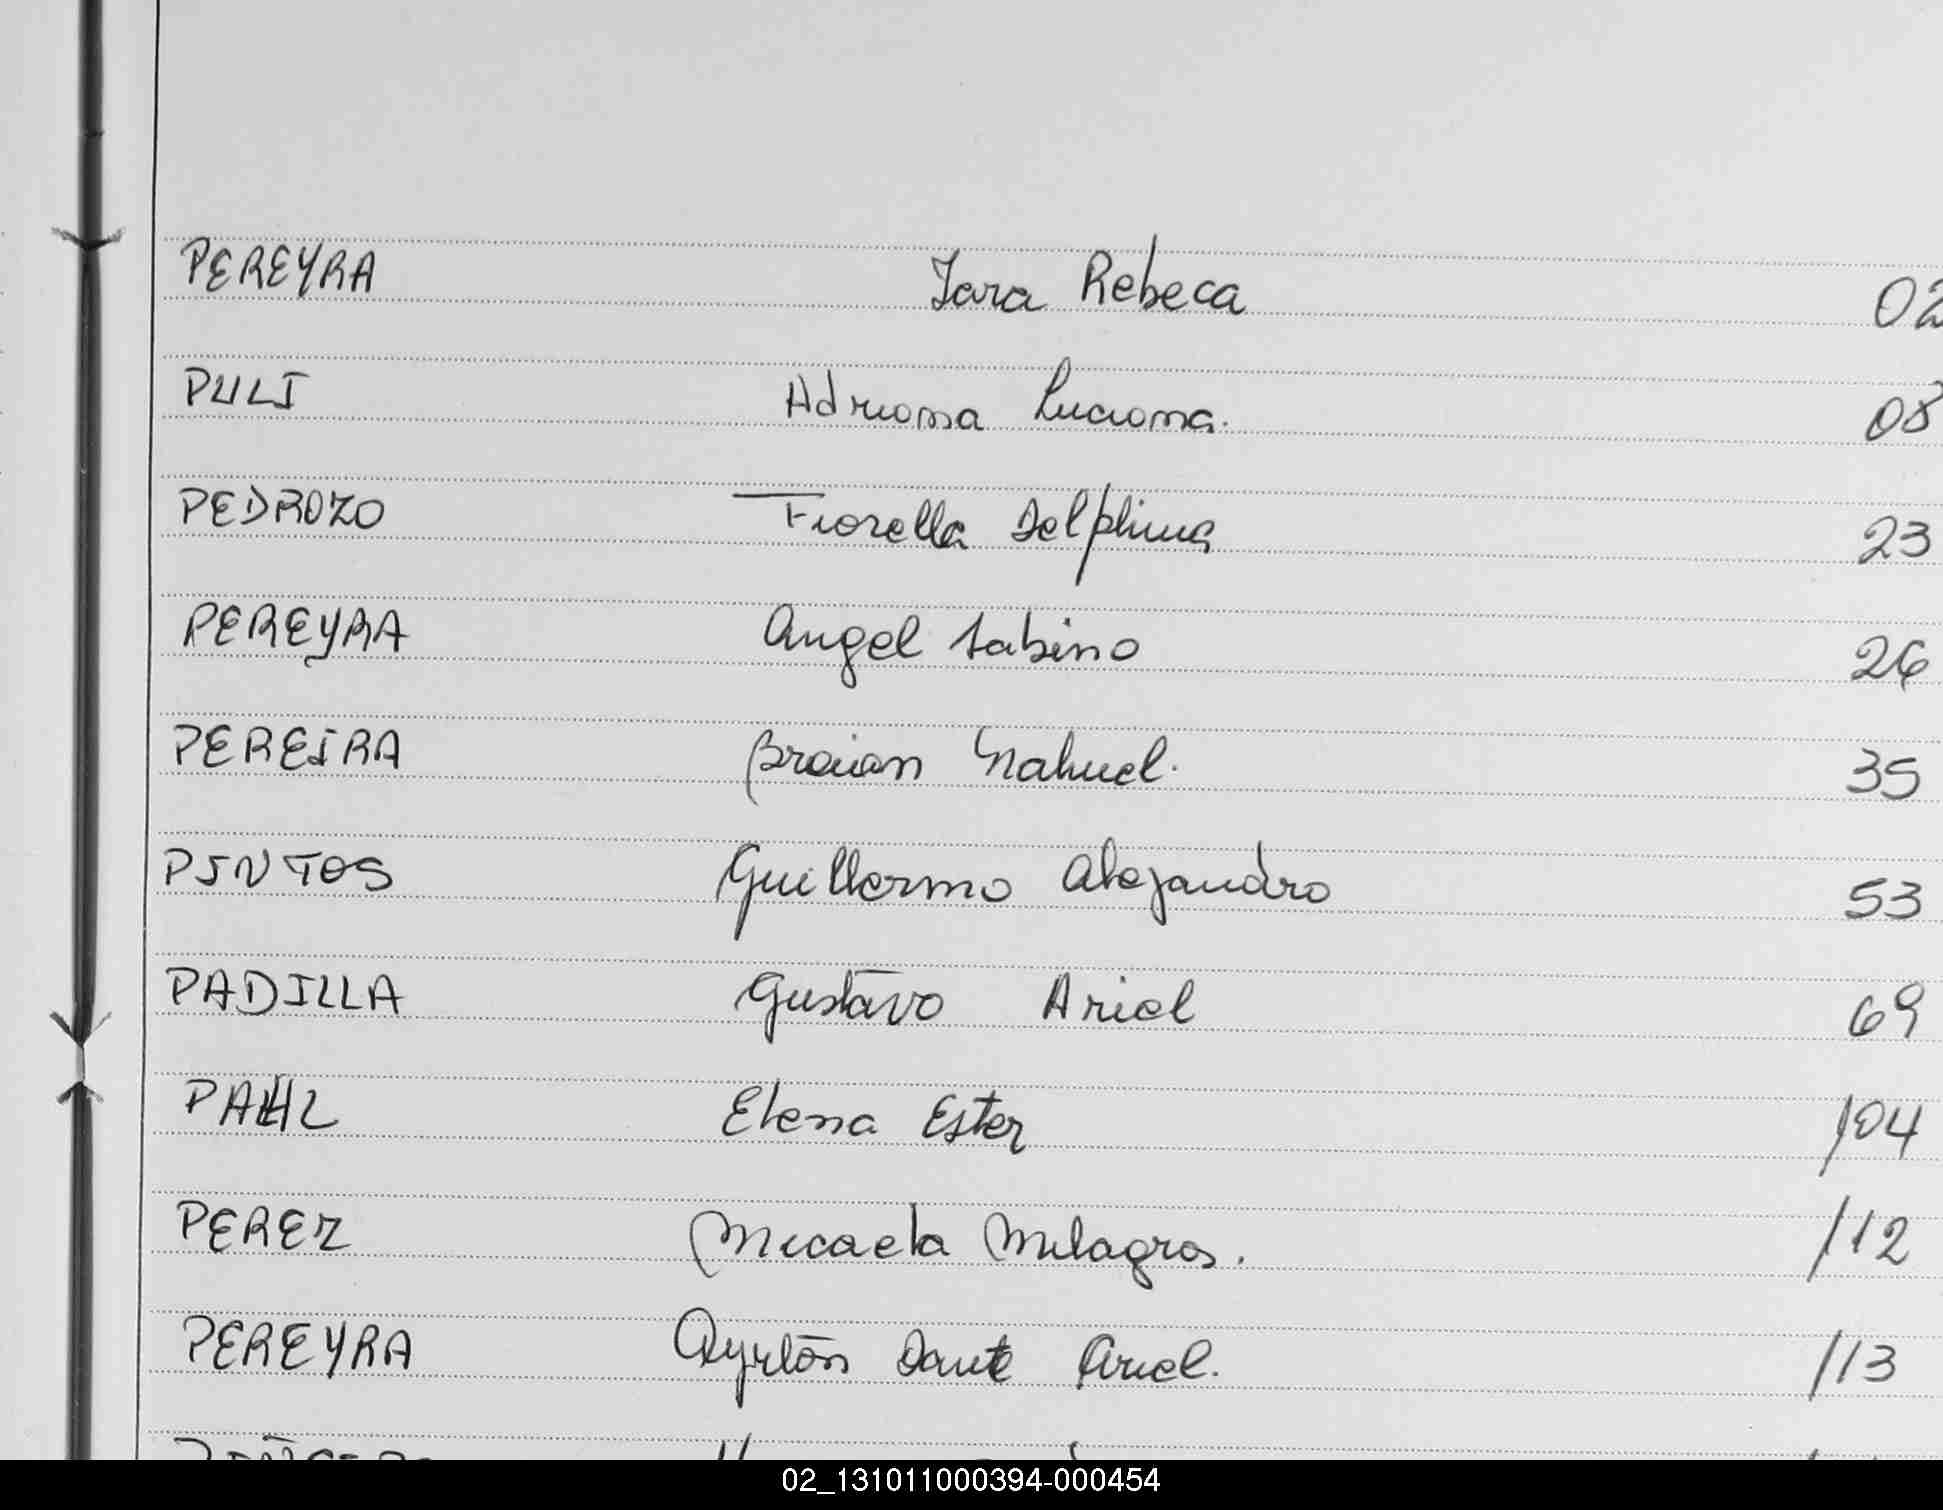 PEREYRA Iara Rebeca 02
PULI Adriana Luciana. 08
PEDROZO Fiorella Delphina 23
PEREYRA Angel Sabino 26
PEREIRA Braian Nahuel. 35
PINTOS Guillermo Alejandro 53
PADILLA Gustavo Ariel 69
PAHL Elena Ester 104
PEREZ Micaela Milagros. 112
PEREYRA Ayrton Dante Ariel. 113
02_131011000394-000454